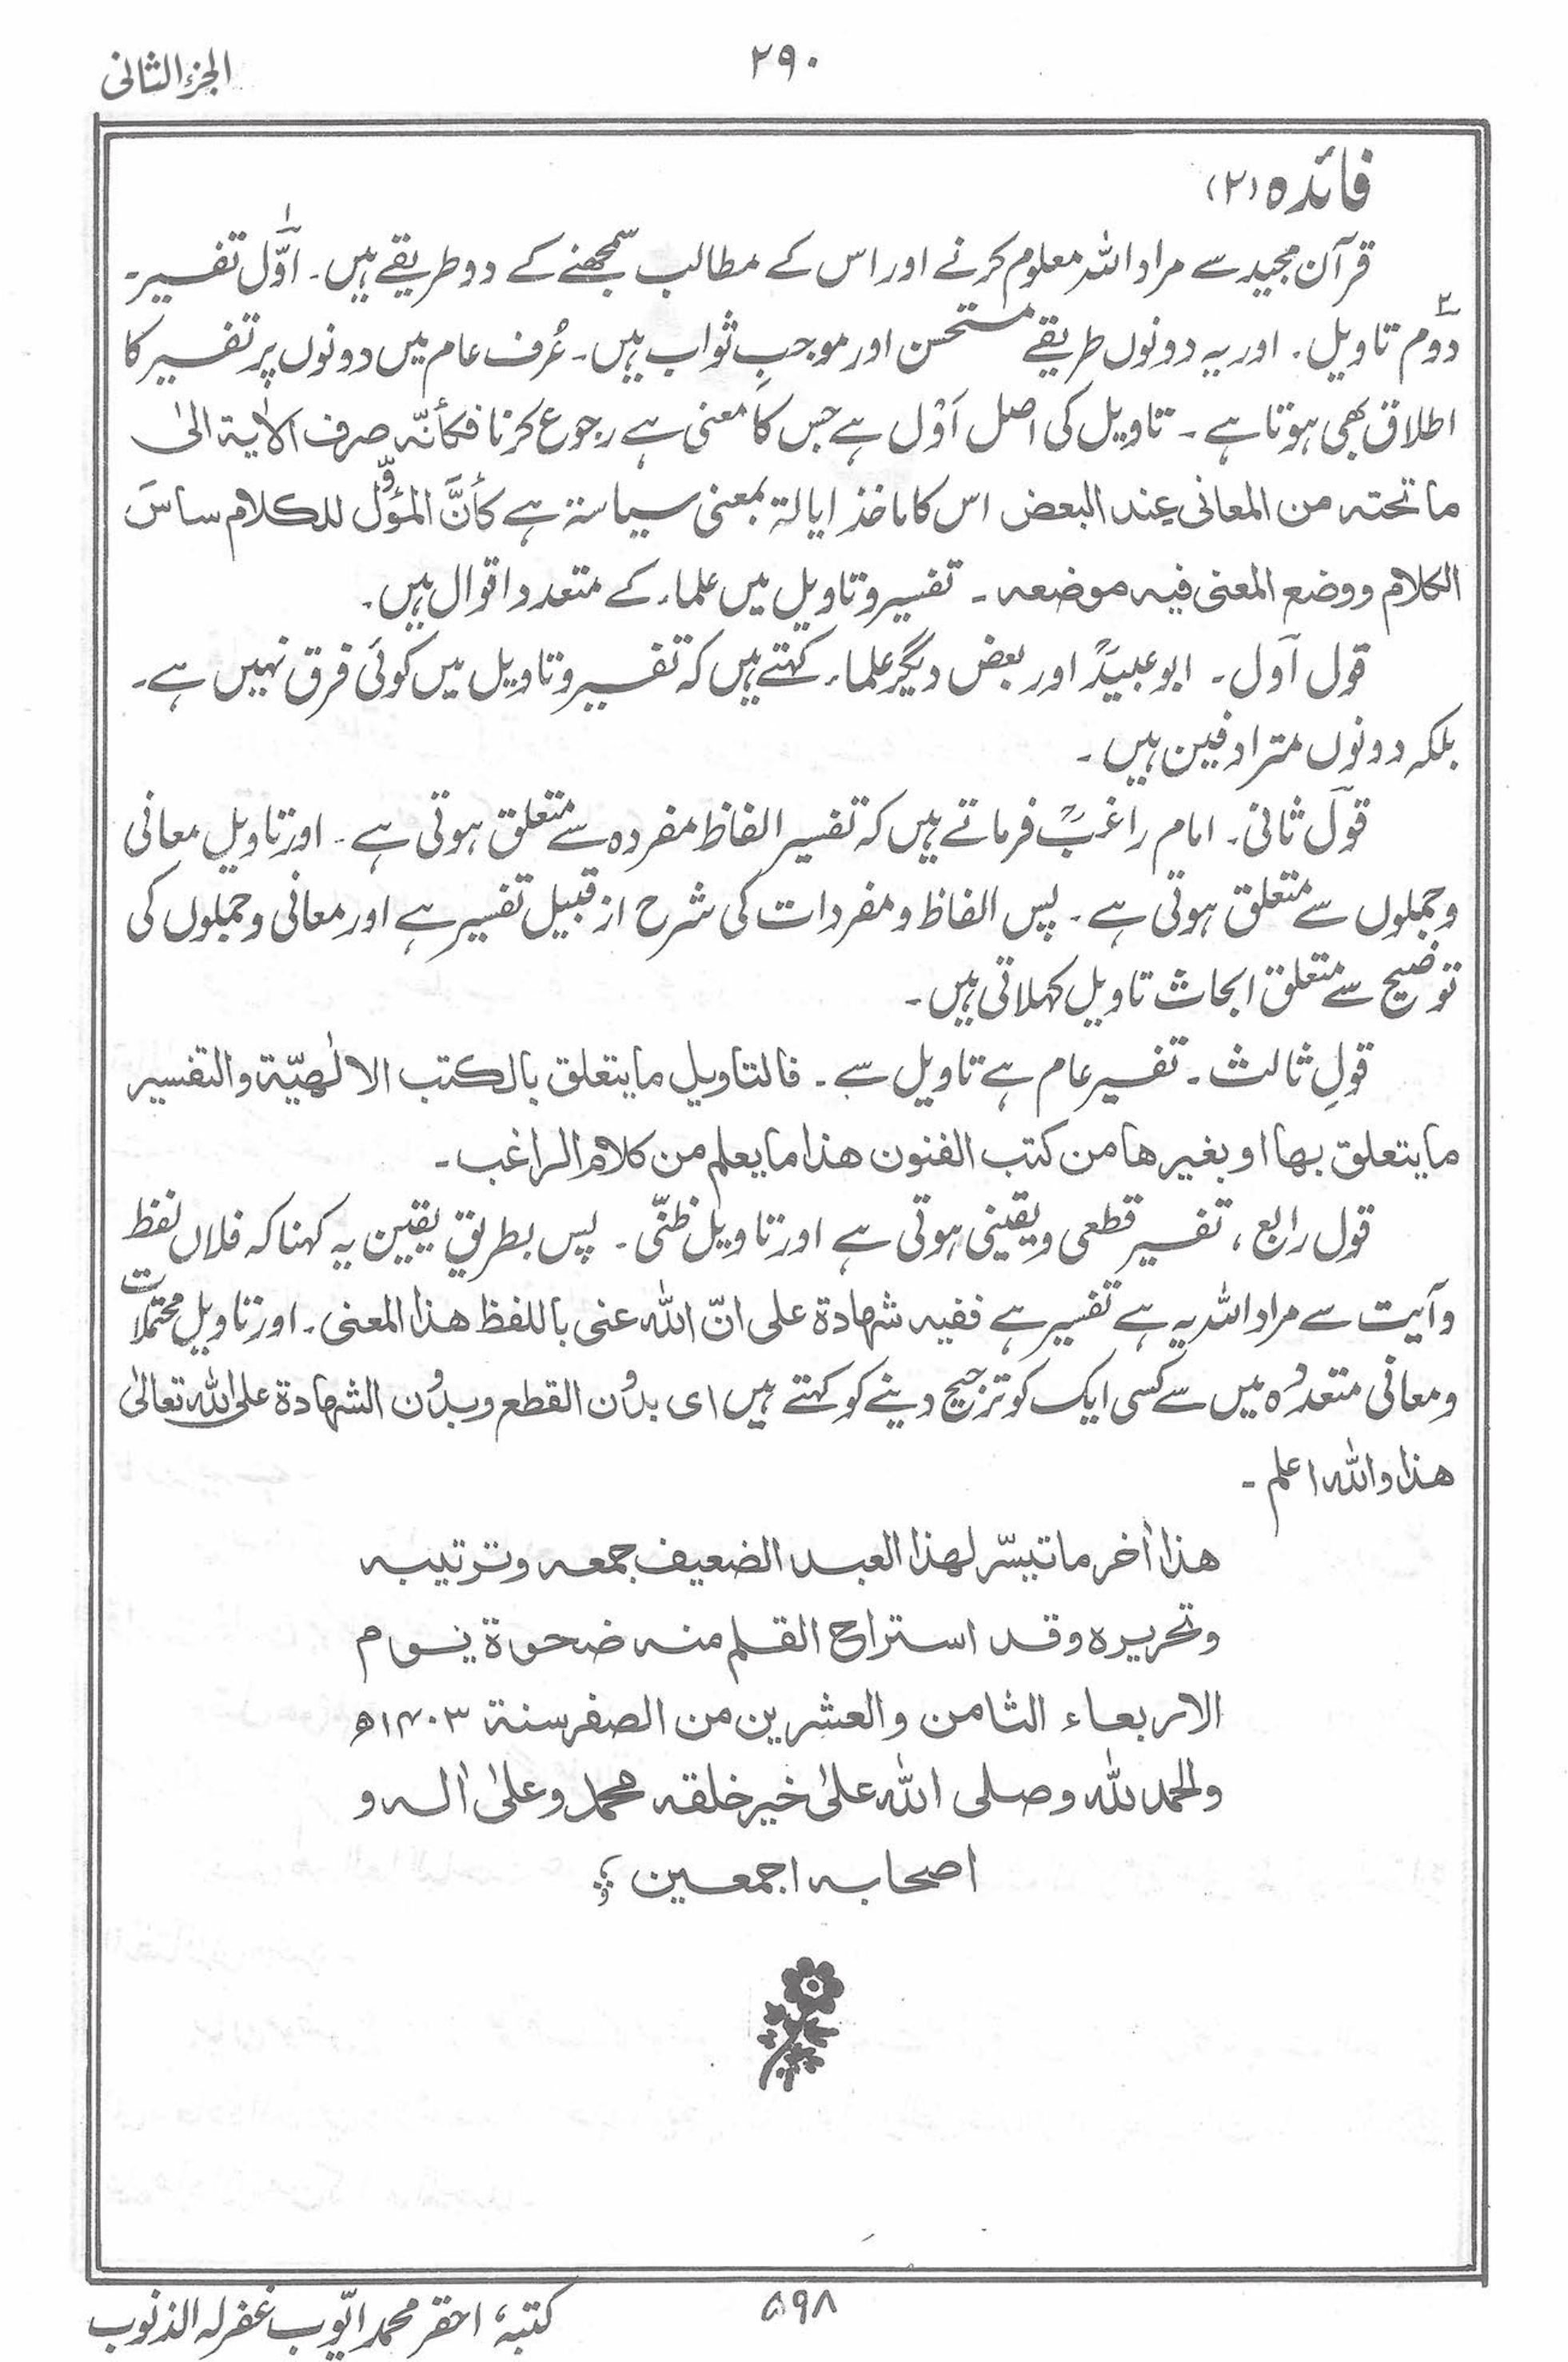 الجزء الثانی
۲۹۰
فائدہ (۲)
قرآن مجید سے مراد اللہ معلوم کرنے اور اس کے مطالب سمجھنے کے دو طریقے ہیں۔ اوّل تفسیر۔
دوّم تاویل۔ اور یہ دونوں طریقے مستحسن اور موجبِ ثواب ہیں۔ عُرف عام میں دونوں پر تفسیر کا
اطلاق بھی ہوتا ہے۔ تاویل کی اصل اَوْل ہے جس کا معنی ہے رجوع کرنا فکأنّہ صرف الاٰیۃ الیٰ
ما تحتہ من المعانی عند البعض اس کا ماخذ ایالۃ بمعنی سیاسۃ ہے کأنَّ المؤوِّل للکلام ساسَ
الکلام ووضع المعنی فیہ موضعہ۔ تفسیر و تاویل میں علماء کے متعدد اقوال ہیں۔
قول اول۔ ابوعبیدؒ اور بعض دیگر علماء کہتے ہیں کہ تفسیر و تاویل میں کوئی فرق نہیں ہے۔
بلکہ دونوں مترادفین ہیں۔
قول ثانی۔ امام راغبؒ فرماتے ہیں کہ تفسیر الفاظ مفردہ سے متعلق ہوتی ہے۔ اور تاویل معانی
و جملوں سے متعلق ہوتی ہے۔ پس الفاظ و مفردات کی شرح از قبیل تفسیر ہے اور معانی و جملوں کی
توضیح سے متعلق ابحاث تاویل کہلاتی ہیں۔
قولِ ثالث۔ تفسیر عام ہے تاویل سے۔ فالتاویل ما یتعلق بالکتب الالٰھیّۃ والتفسیر
ما یتعلق بھا او بغیرھا من کتب الفنون ھذا ما یعلم من کلام الراغب۔
قول رابع، تفسیر قطعی و یقینی ہوتی ہے اور تاویل ظنّی۔ پس بطریق یقین یہ کہنا کہ فلاں لفظ
و آیت سے مراد اللہ یہ ہے تفسیر ہے ففیہ شھادۃ علی انّ اللہ عنی باللفظ ھذا المعنی۔ اور تاویل محتملات
و معانی متعددہ میں سے کسی ایک کو ترجیح دینے کو کہتے ہیں ای بدُون القطع وبدُون الشھادۃ علی اللہ تعالیٰ
ھذا واللہ اعلم۔
ھذا اٰخر ما تیسّر لھذا العبد الضعیف جمعہ وترتیبہ
وتحریرہ وقد استراح القلم منہ ضحوۃ یوم
الاربعاء الثامن والعشرین من الصفر سنۃ ۱۴۰۳ھ
والحمد للہ وصلی اللہ علیٰ خیر خلقہ محمد وعلیٰ اٰلہ و
اصحابہ اجمعین
۵۹۸
کتبہٗ احقر محمد ایّوب غفرلہ الذنوب